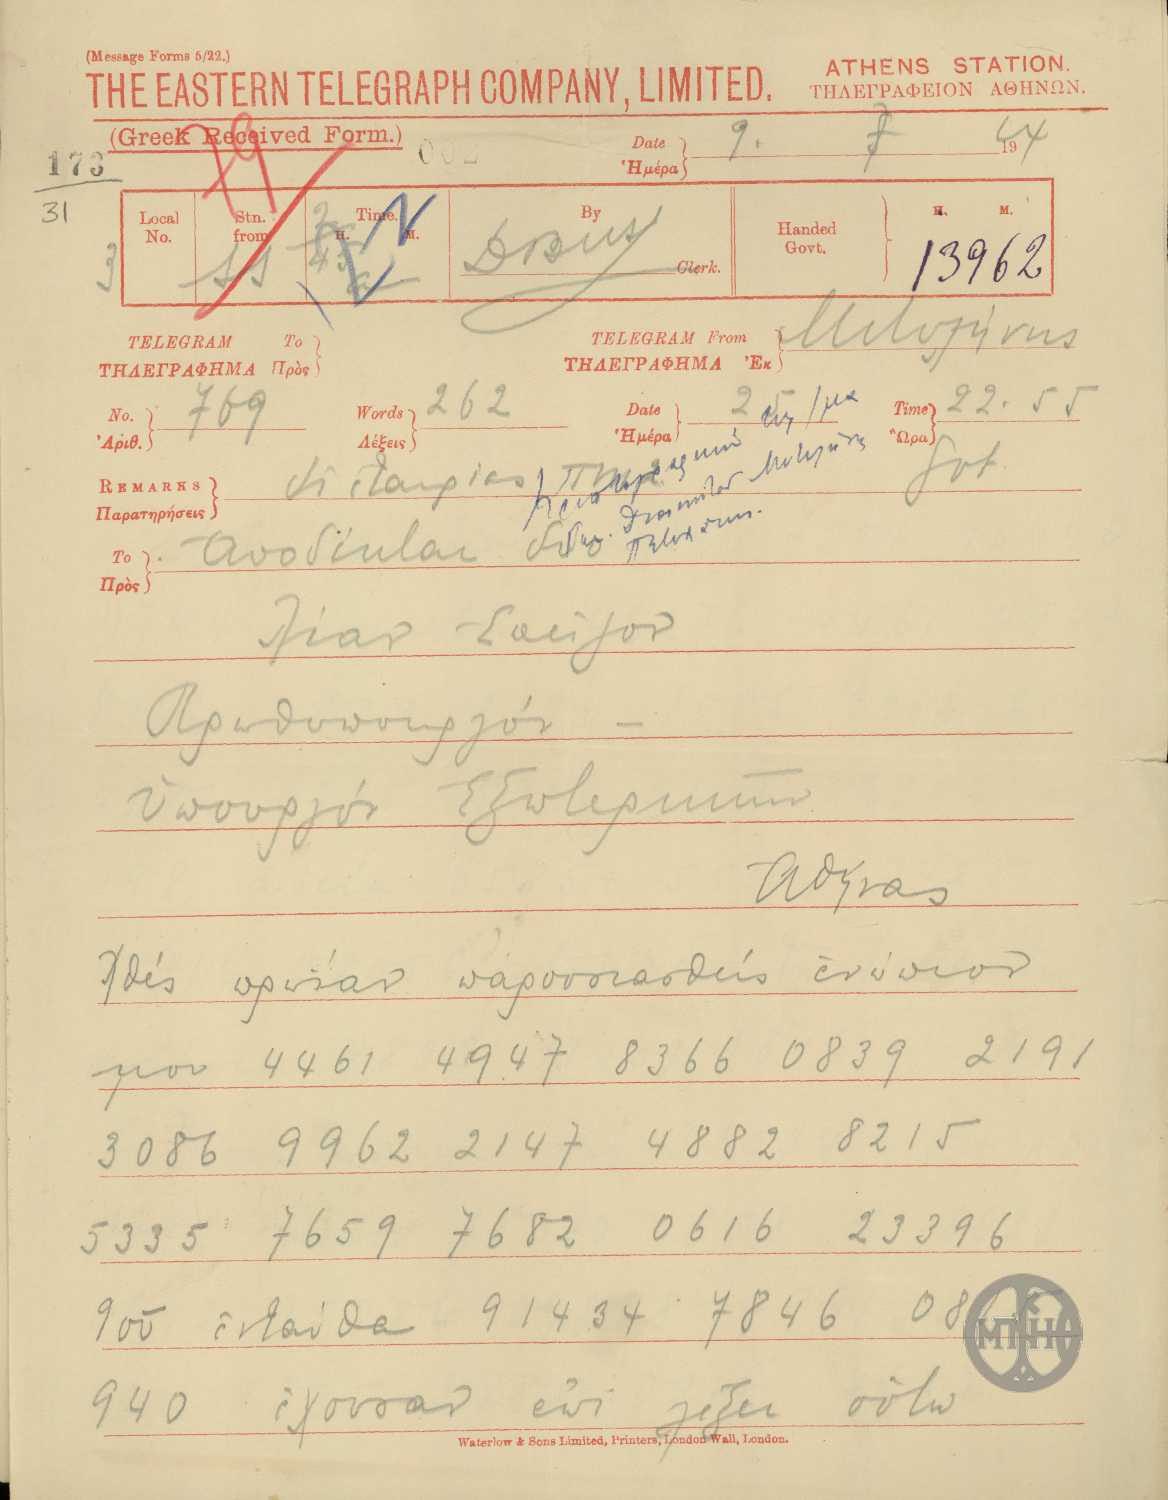 (Message Forms 5/22.)
THE EASTERN TELEGRAPH COMPANY, LIMITED.
ATHENS STATION.
ΤΗΛΕΓΡΑΦΕΙΟΝ ΑΘΗΝΩΝ.
(Greek Received Form.)
79
002
Date
Ἡμέρα
9. 7 1944
173
31
3
Local
No.
Stn.
from
Time.
H. M.
By
Clerk.
Handed
Govt.
H. M.
13962
TELEGRAM To
ΤΗΛΕΓΡΑΦΗΜΑ Πρὸς
TELEGRAM From
ΤΗΛΕΓΡΑΦΗΜΑ Ἐκ
Μιτυλήνης
No.
Ἀριθ.
769
Words
Λέξεις
262
Date
Ἡμέρα
25
Time
Ὥρα
22.55
REMARKS
Παρατηρήσεις
δι ἑταιρίας
To
Πρὸς
Ἀποδέκται δύο
Λίαν Ἐπεῖγον
Πρωθυπουργόν –
Ὑπουργόν Ἐξωτερικῶν
Ἀθήνας
Χθές πρωίαν παρουσιασθείς ἐνώπιον
μου 4461 4947 8366 0839 2191
3086 9962 2147 4882 8215
5335 7659 7682 0616 23396
9οῦ ἐνταῦθα 91434 7846
940 ἔχουσαν ἐπί λέξει οὕτω
Waterlow & Sons Limited, Printers, London Wall, London.